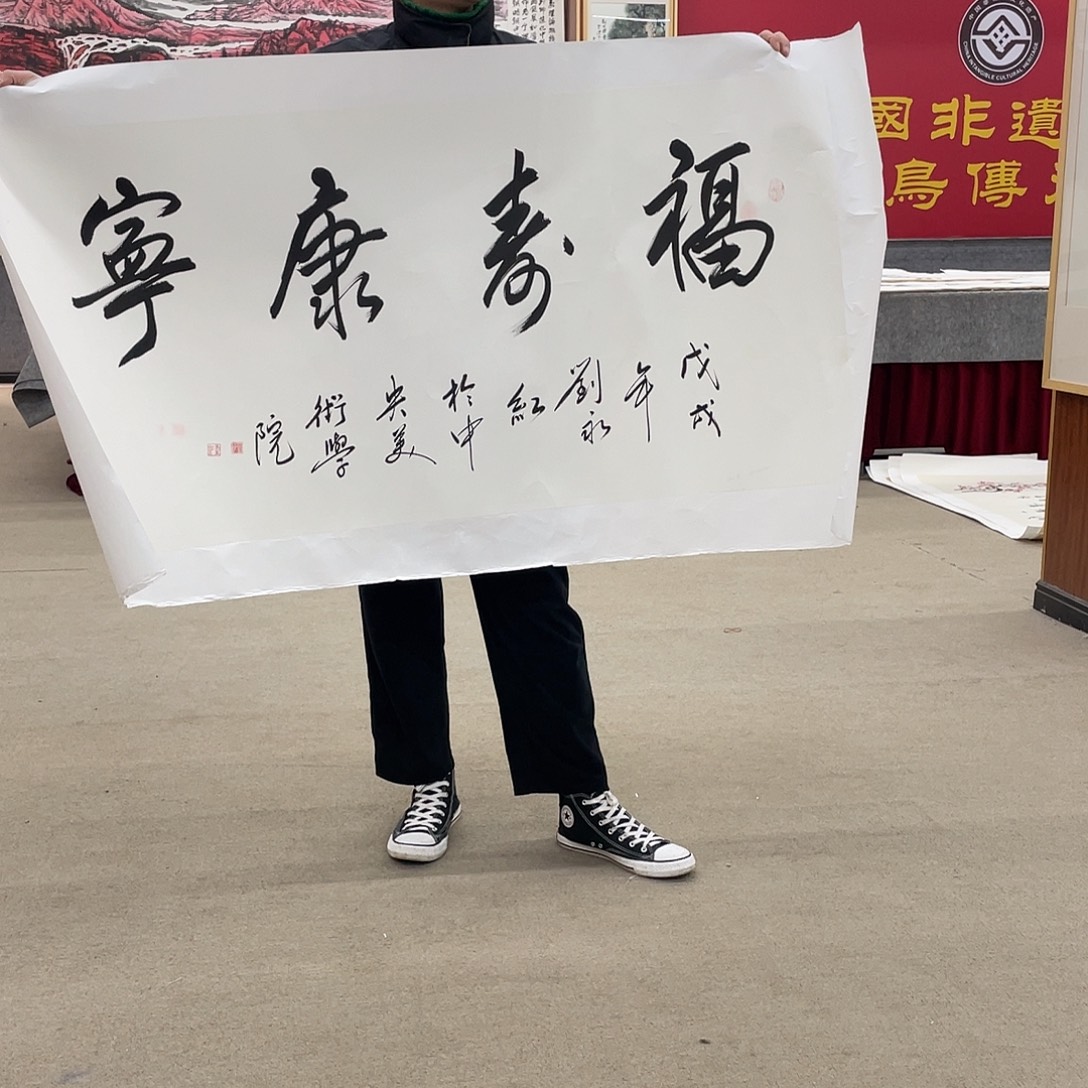 福壽康寧
戊戌
年
劉永
紅
於中
央美
術學
院
國非遺
鳥傳
CHINA INTANGIBLE CULTURAL HERITAGE